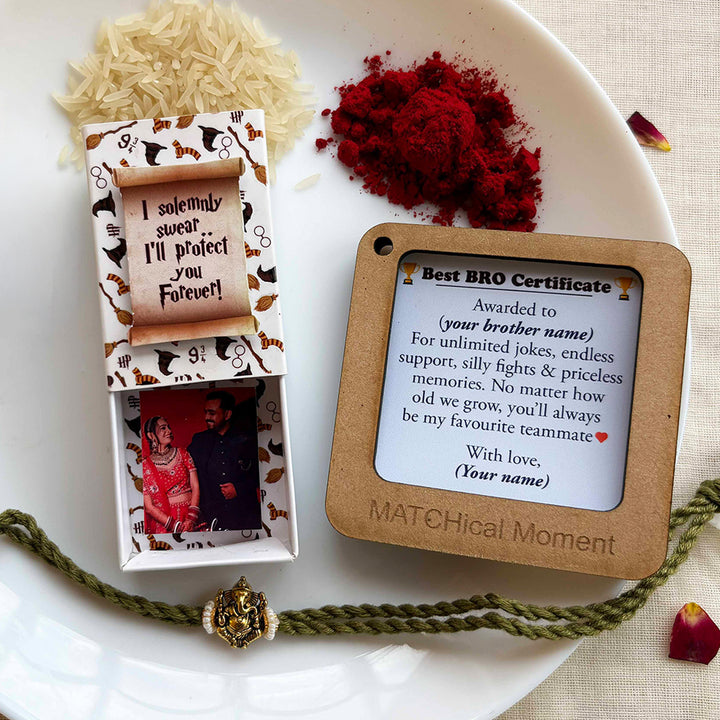 I solemnly
swear..
I'll protect
you
Forever!
9 3/4
9 3/4
Best BRO Certificate
Awarded to
(your brother name)
For unlimited jokes, endless
support, silly fights & priceless
memories. No matter how
old we grow, you'll always
be my favourite teammate❤
With love,
(Your name)
MATCHical Moment